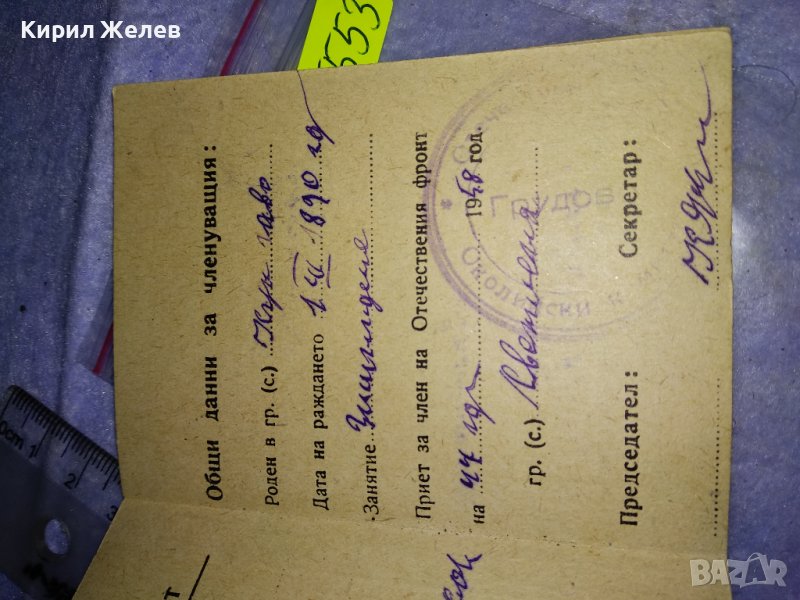 Кирил Желев
553
Общи данни за членуващия:
Роден в гр. (с.)
Дата на раждането 1. III 1890 год
Занятие Земеделие
Приет за член на Отечествения фронт
на 44 год 1948 год.
гр. (с.)
Председател: Секретар:
ГРУДОВ
Околийски
0cm 1 2 3
BAZAR